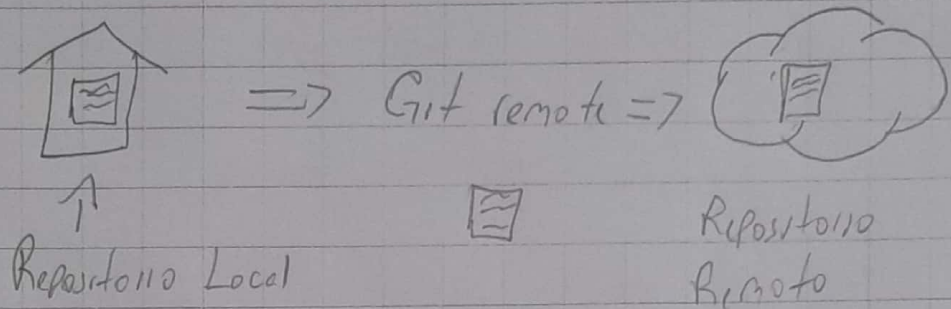 => Git remote =>
Repositorio Local
Repositorio
Remoto